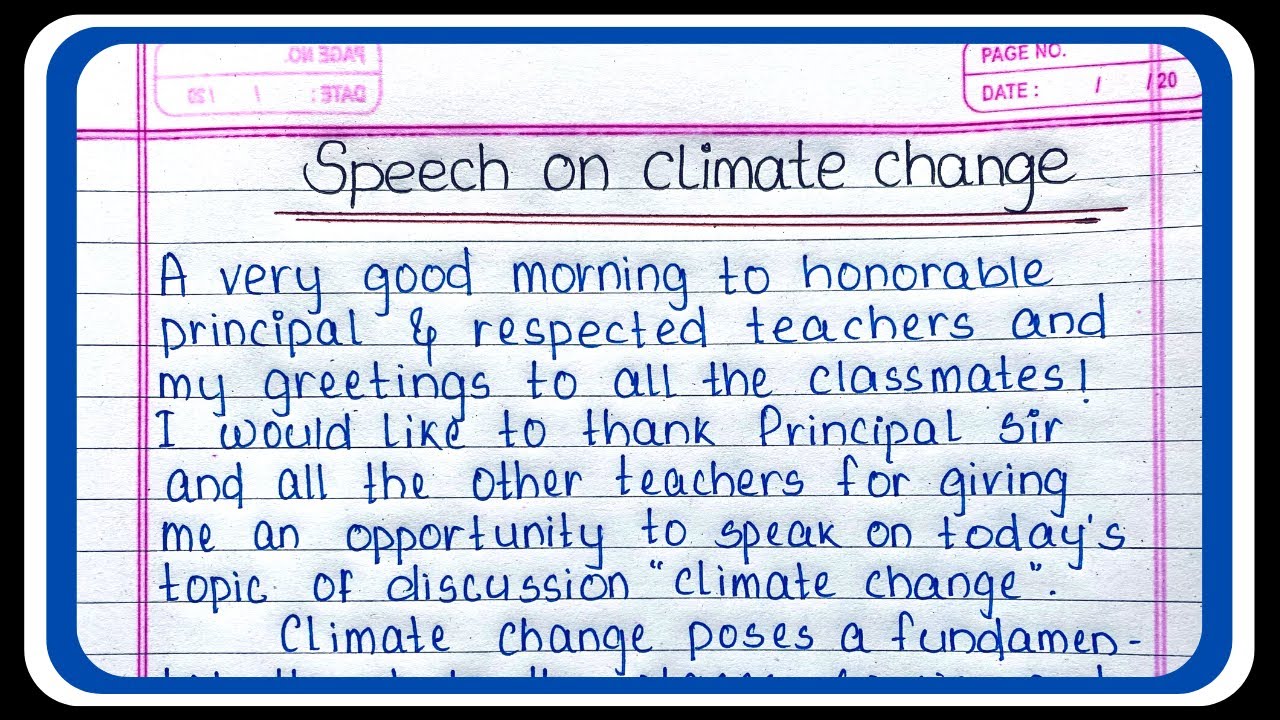 PAGE NO.
DATE : / / 20
PAGE NO.
DATE : / / 20
Speech on climate change
A very good morning to honorable
principal & respected teachers and
my greetings to all the classmates!
I would like to thank Principal sir
and all the other teachers for giving
me an opportunity to speak on today's
topic of discussion "climate change".
Climate change poses a fundamen-